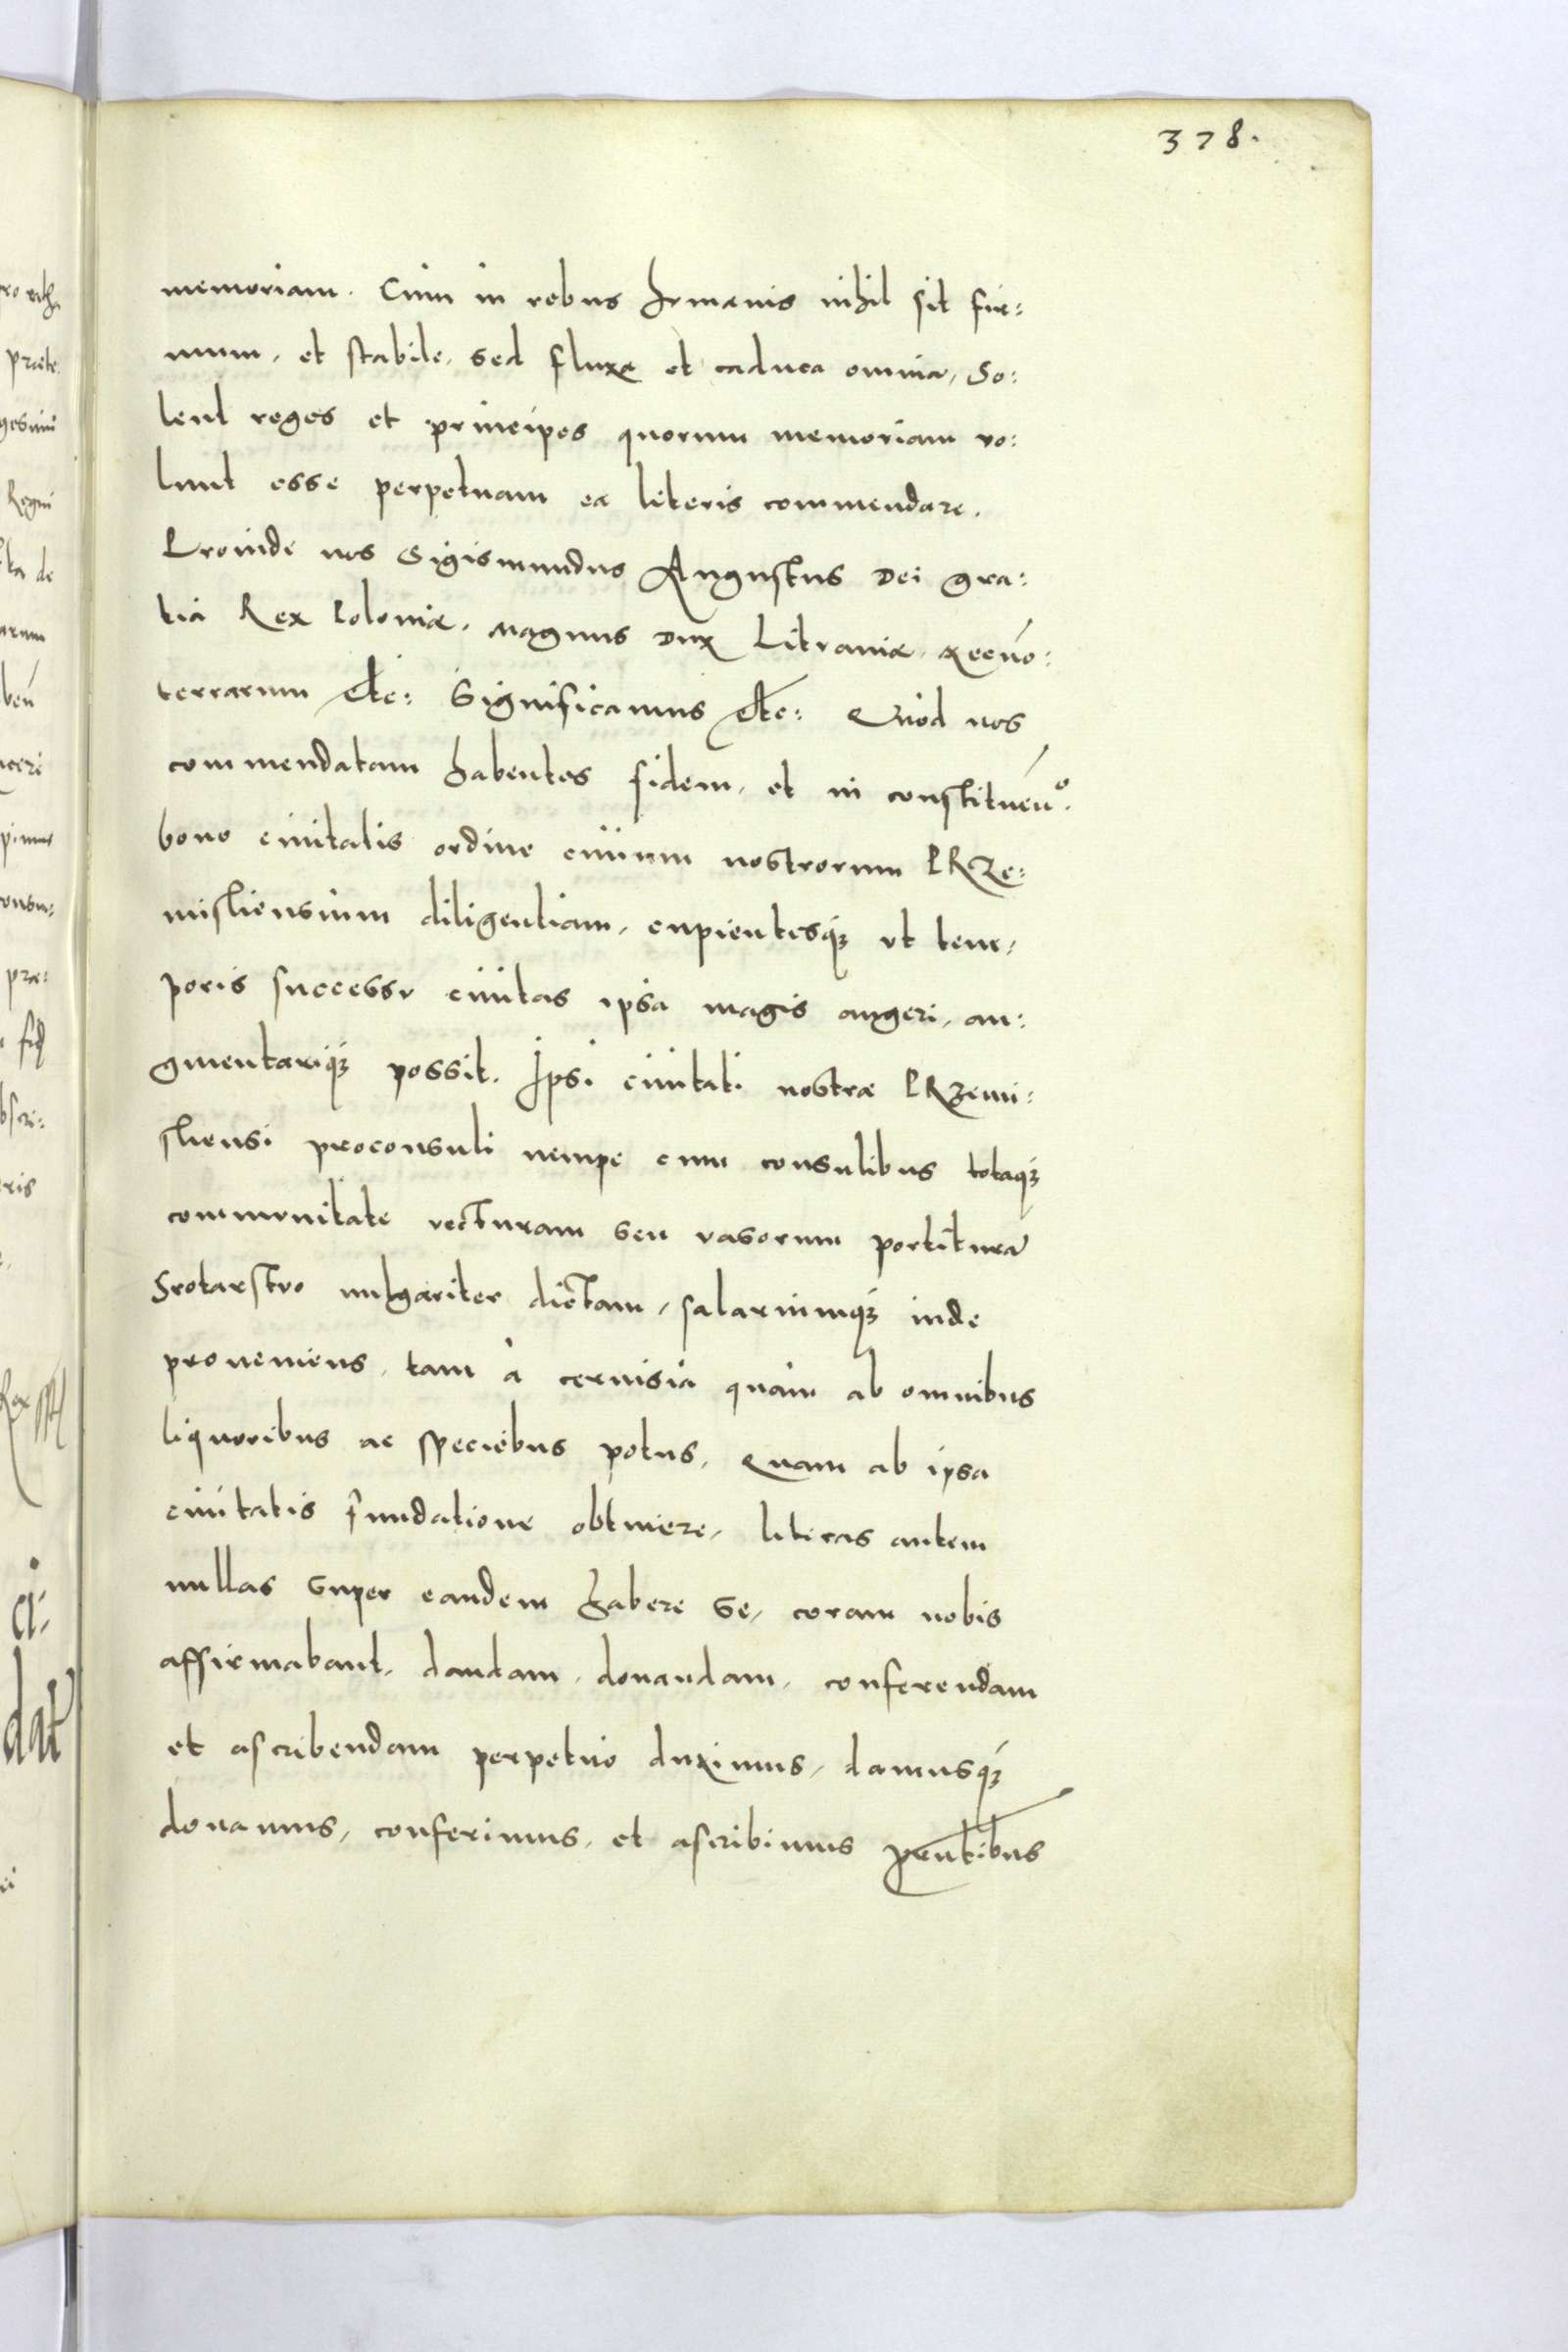 378.
memoriam. Cùm in rebus humanis nihil sit fir:
mum, et stabile, sed fluxa et caduca omnia, So:
lent reges et principes quorum memoriam vo:
lunt esse perpetuam ea literis commendare.
Proinde nos Sigismundus Augustus Dei gra:
tia Rex Poloniæ, Magnus Dux Lituaniæ, necnō:
terrarum etc: Significamus etc: Quòd nos
commendatam habentes fidem, et in constituēn°:
bono ciuitatis ordine ciuium nostrorum PRze:
misliensium diligentiam, cupientesq́ue vt tem,
poris successu ciuitas ipsa magis augeri, au:
gmentariq́ue possit. Ipsi ciuitati nostræ PRzemi:
sliensi proconsuli nempe cum consulibus totaq́ue
communitate vecturam seu vasorum portiturā
Srotarstvo uulgariter dictam, salariumq́ue inde
proueniens, tam à ceruisia quàm ab omnibus
liquoribus ac speciebus potus, Quam ab ipsa
ciuitatis fundatione obtinere, literas autem
nullas super eandem habere se, coram nobis
affirmabant, dandam, donandam, conferendam
et ascribendam perpetuò duximus, damusq́ue
donamus, conferimus, et ascribimus pn̄tibus
præ:
Regni
dat